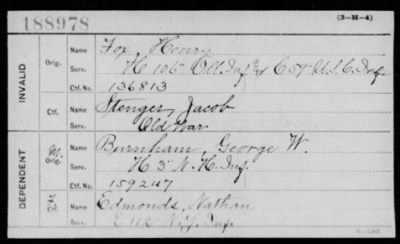 188978
(3-H-4)
INVALID
Orig.
Name Fox, Henry
Serv. H 106" Ill Inf & C 59" U.S.C. Inf
Ctf. No. 136813
Ctf.
Name Stenger, Jacob
Serv. Old War
DEPENDENT
M.
Orig.
Name Burnham, George W.
Serv. H 3" N.H. Inf.
Ctf. No. 159247
Ctf.
Name Edmonds, Nathan
Serv. E 112 N.Y. Inf.